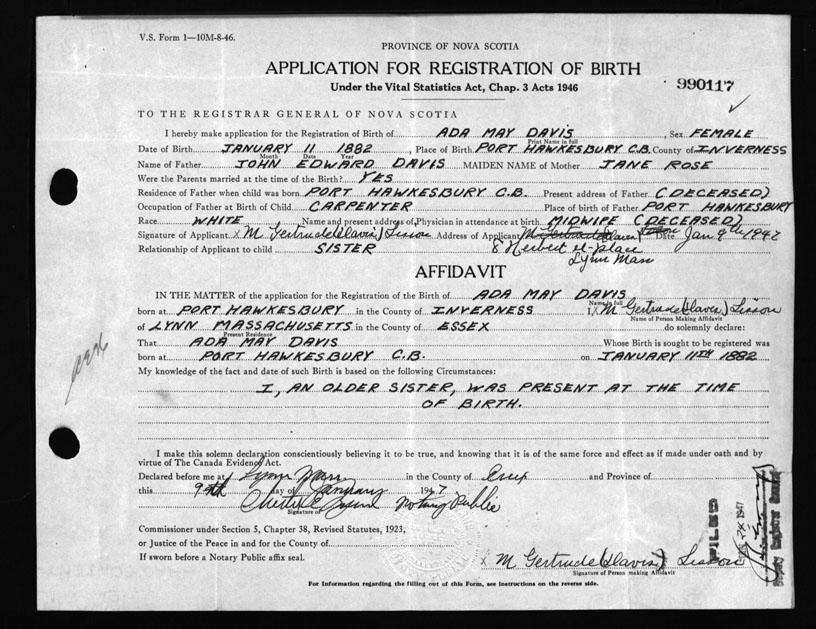 V.S. Form 1—10M-8-46.
PROVINCE OF NOVA SCOTIA
APPLICATION FOR REGISTRATION OF BIRTH
Under the Vital Statistics Act, Chap. 3 Acts 1946
990117
TO THE REGISTRAR GENERAL OF NOVA SCOTIA
I hereby make application for the Registration of Birth of ADA MAY DAVIS, Sex FEMALE
Print Name in full
Date of Birth JANUARY 11 1882, Place of Birth PORT HAWKESBURY C.B. County of INVERNESS
Month Date Year
Name of Father JOHN EDWARD DAVIS MAIDEN NAME of Mother JANE ROSE
Were the Parents married at the time of the Birth? YES
Residence of Father when child was born PORT HAWKESBURY C.B. Present address of Father (DECEASED)
Occupation of Father at Birth of Child CARPENTER Place of birth of Father PORT HAWKESBURY
Race WHITE, Name and present address of Physician in attendance at birth MIDWIFE (DECEASED)
Signature of Applicant x M Gertrude (Slavin) Address of Applicant Date Jan 9th 1947
Relationship of Applicant to child SISTER 8 Herbert Place
Lynn Mass
AFFIDAVIT
IN THE MATTER of the application for the Registration of the Birth of ADA MAY DAVIS
Name in full
born at PORT HAWKESBURY in the County of INVERNESS I, x M Gertrude (Slavin)
Name of Person Making Affidavit
of LYNN MASSACHUSETTS in the County of ESSEX do solemnly declare:
Present Residence
That ADA MAY DAVIS Whose Birth is sought to be registered was
born at PORT HAWKESBURY C.B. on JANUARY 11TH 1882
My knowledge of the fact and date of such Birth is based on the following Circumstances:
I, AN OLDER SISTER, WAS PRESENT AT THE TIME
OF BIRTH.
I make this solemn declaration conscientiously believing it to be true, and knowing that it is of the same force and effect as if made under oath and by
virtue of The Canada Evidence Act.
Declared before me at Lynn Mass in the County of Essex and Province of
this 9th day of January 1947
Notary Public
Signature of
Commissioner under Section 5, Chapter 38, Revised Statutes, 1923,
or Justice of the Peace in and for the County of
If sworn before a Notary Public affix seal.
x M Gertrude (Slavin)
Signature of Person making Affidavit
FILED
For Information regarding the filling out of this Form, see instructions on the reverse side.